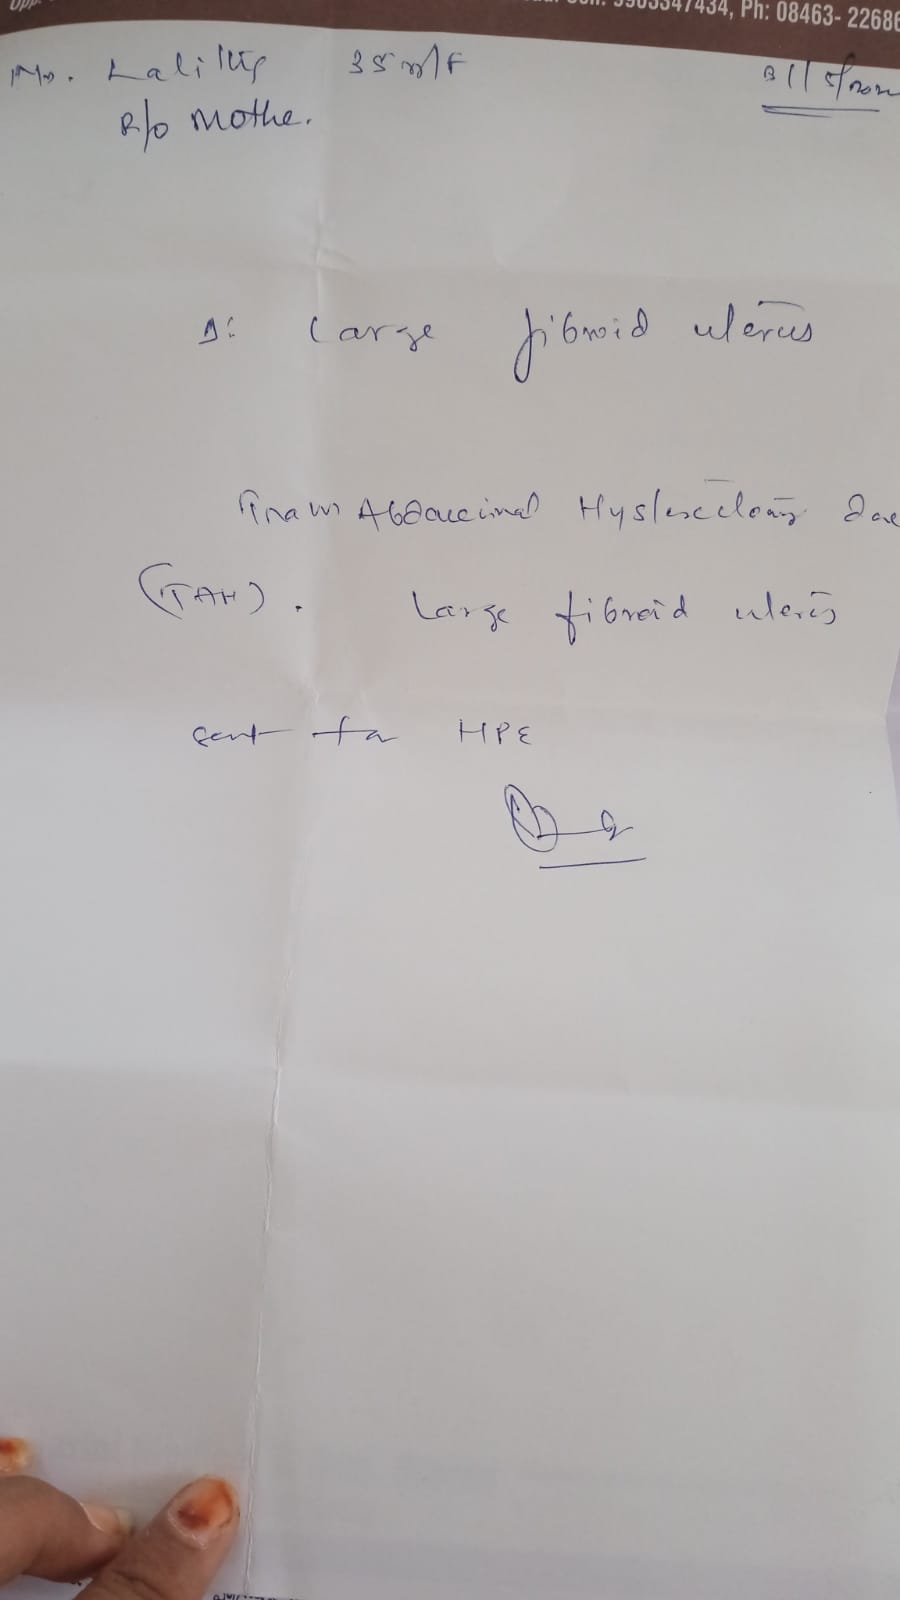 5903347434, Ph: 08463- 22686
Mrs. Lalitha 35 y/F
R/o Mothe.
D: Large fibroid uterus
Abdominal Hysterectomy done
(TAH). Large fibroid uterus
sent for HPE